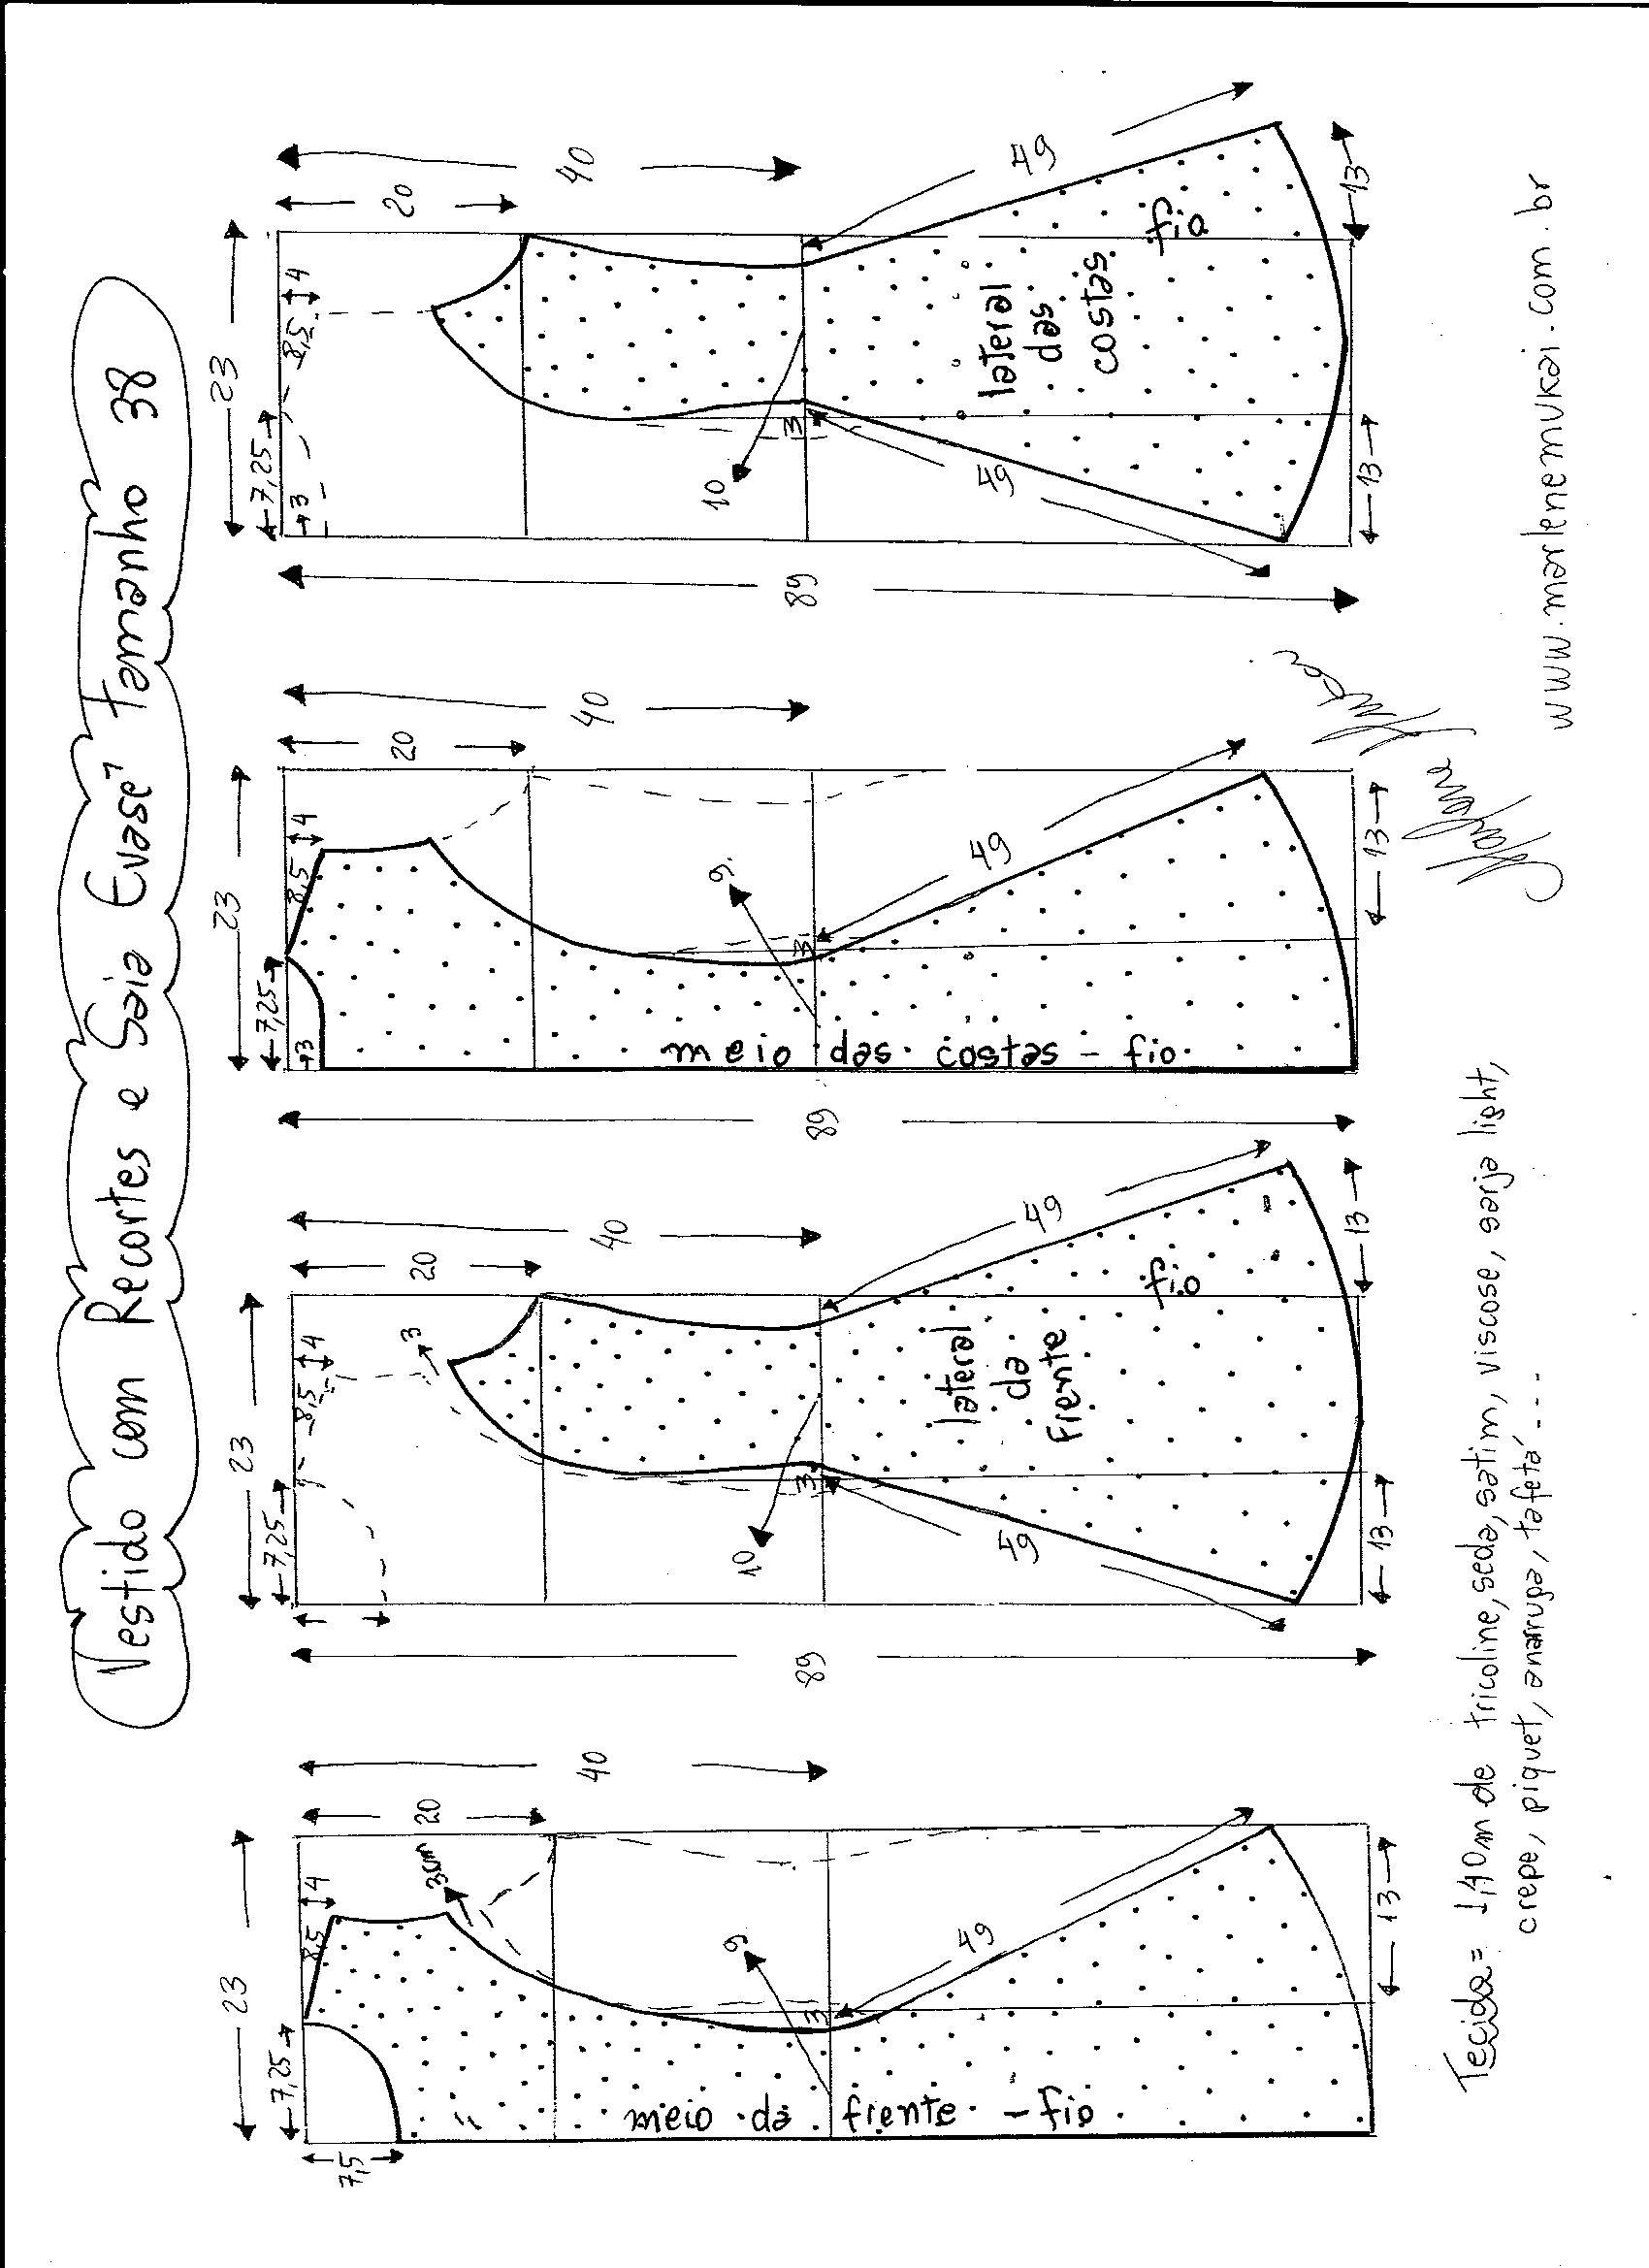 Vestido com Recortes e Saia Evasê Tamanho 38
23
7,25
8,5
4
7,5
20
40
3cm
9
3
49
13
meio da frente - fio
23
7,25
8,5
4
20
40
3
89
10
3
49
49
13
13
lateral
da
frente
fio
23
7,25
8,5
4
3
20
40
89
9
3
49
13
meio das costas - fio
23
7,25
8,5
4
3
20
40
89
10
3
49
49
13
13
lateral
das
costas
fio
Tecido = 1,40m de tricoline, seda, satim, viscose, sarja light,
crepe, piquet, anarruga, tafetá ...
Marlene Mukai
www.marlenemukai.com.br